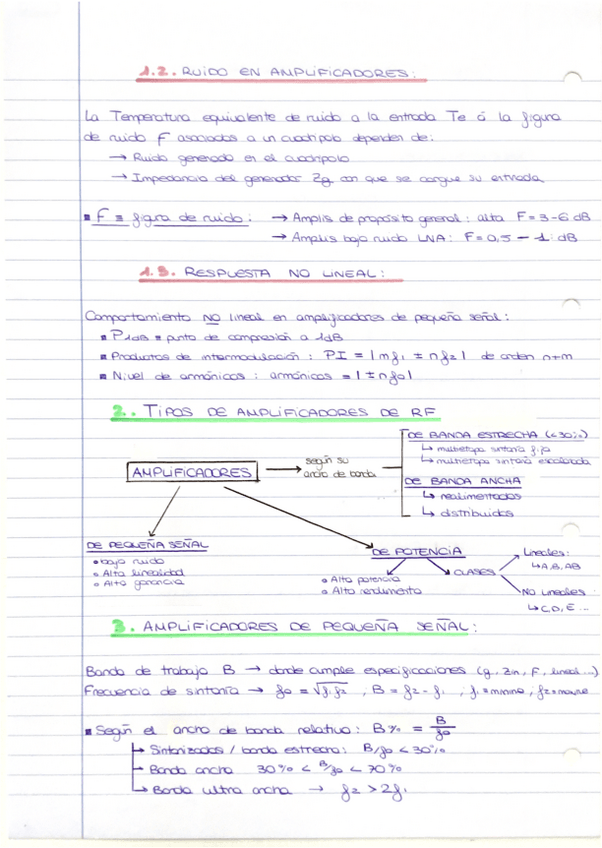 1.2. RUIDO EN AMPLIFICADORES:
La Temperatura equivalente de ruido a la entrada Te ó la figura
de ruido F asociados a un cuadripolo dependen de:
→ Ruido generado en el cuadripolo
→ Impedancia del generador Zg con que se cargue su entrada
▪ F ≡ figura de ruido: → Amplis de propósito general: alta F=3-6 dB
→ Amplis bajo ruido LNA: F=0,5 - 1 dB
1.3. RESPUESTA NO LINEAL:
Comportamiento NO lineal en amplificadores de pequeña señal:
▪ P1dB ≡ punto de compresión a 1dB
▪ Productos de intermodulación: PI = |mf₁ ± nf₂| de orden n+m
▪ Nivel de armónicos: armónicos = |±nf₀|
2. TIPOS DE AMPLIFICADORES DE RF
AMPLIFICADORES → según su ancho de banda
DE BANDA ESTRECHA (<30%)
↳ multietapa sintonía fija
↳ multietapa sintonía escalonada
DE BANDA ANCHA
↳ realimentados
↳ distribuidos
DE PEQUEÑA SEÑAL
• bajo ruido
• Alta linealidad
• Alta ganancia
DE POTENCIA
• Alta potencia
• Alto rendimiento
CLASES
Lineales:
↳ A, B, AB
NO Lineales:
↳ C, D, E ...
3. AMPLIFICADORES DE PEQUEÑA SEÑAL:
Banda de trabajo B → donde cumple especificaciones (g, Zin, F, lineal...)
Frecuencia de sintonía → f₀ = √f₁f₂ , B = f₂ - f₁ ; f₁ ≡
▪ Según el ancho de banda relativo: B% = B/f₀
↳ Sintonizados / banda estrecha: B/f₀ < 30%
↳ Banda ancha 30% < B/f₀ < 70%
↳ Banda ultra ancha → f₂ > 2f₁